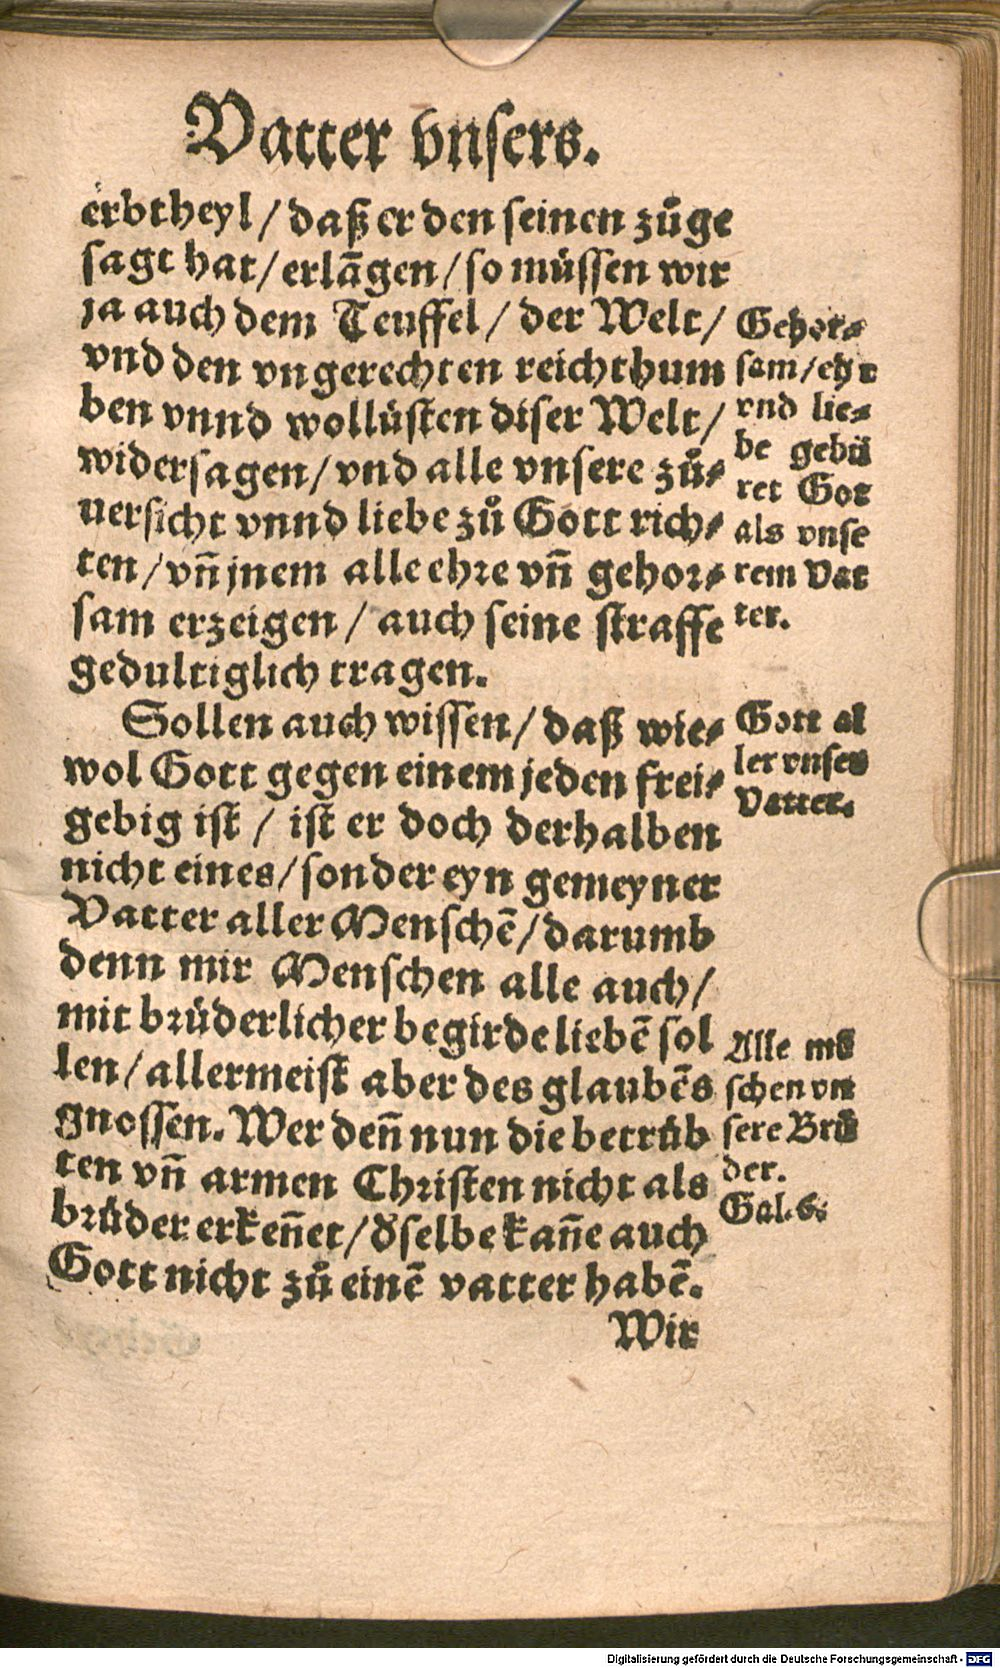 Vatter vnsers.
erbtheyl / daß er den seinen zůge
sagt hat / erlãgen / so müssen wir
ja auch dem Teuffel / der Welt /
vnd den vngerechten reichthum
ben vnnd wollüsten diser Welt /
widersagen / vnd alle vnsere zů⸗
uersicht vnnd liebe zů Gott rich⸗
ten / vñ jnem alle ehre vñ gehor⸗
sam erzeigen / auch seine straffe
gedultiglich tragen.
Sollen auch wissen / daß wie⸗
wol Gott gegen einem jeden frei⸗
gebig ist / ist er doch derhalben
nicht eines / sonder eyn gemeyner
Vatter aller Menschẽ / darumb
denn mir Menschen alle auch /
mit brüderlicher begirde liebẽ sol
len / allermeist aber des glaubẽs
gnossen. Wer deñ nun die betrůb
ten vñ armen Christen nicht als
brůder erkeñet / d̕selbe kañe auch
Gott nicht zů einẽ vatter habẽ.
Wir
Gehor⸗
sam / ehr
vnd lie⸗
be gebü
ret Got
als vnse
rem Vat
ter.
Gott al
ler vnser
Vatter.
Alle mẽ
schen vn
sere Brů
der.
Gal. 6.
Digitalisierung gefördert durch die Deutsche Forschungsgemeinschaft - DFG